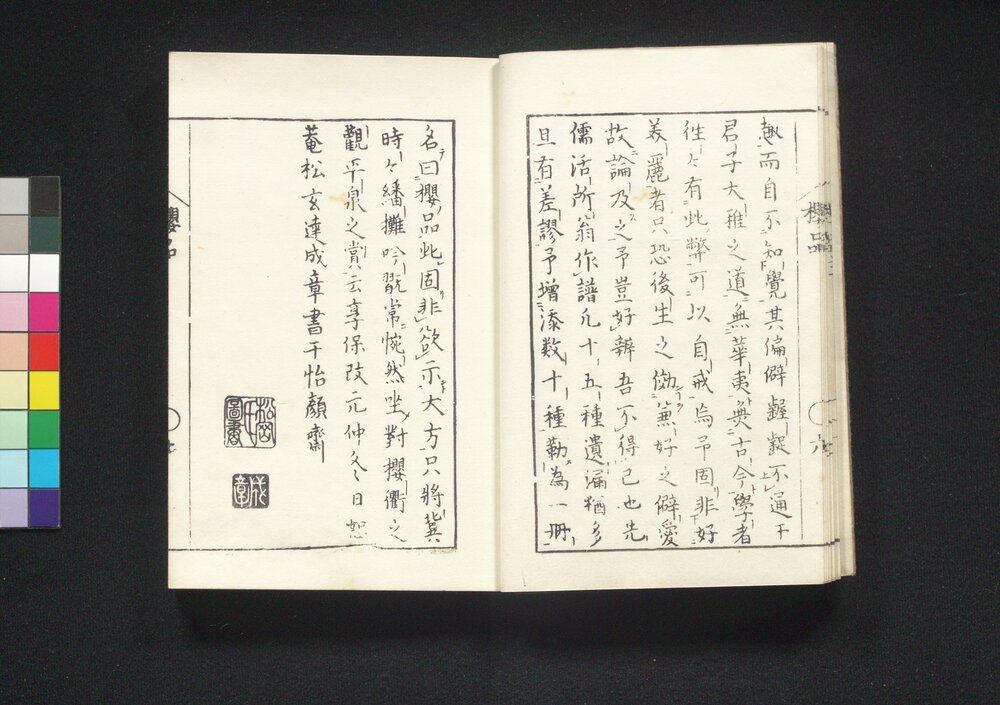 趣而自不知覺其偏僻齷齪不通于
君子大雅之道無華夷無古今學者
徃々有此弊可以自戒焉予固非好
美麗者只恐後生之傚無好之僻愛
故論及之予豈好辨吾不得已也先
儒活所翁作譜凡十五種遺漏猶多
且有差謬予增添数十種勒為一冊
名曰櫻品此固非欲示大方只將冀
時々繙攤吟翫常惋然坐對櫻衢之
觀平泉之賞云享保改元仲冬日恕
菴松玄達成章書于怡顏齋
松岡氏圖書
成章
櫻品
六
櫻品
七